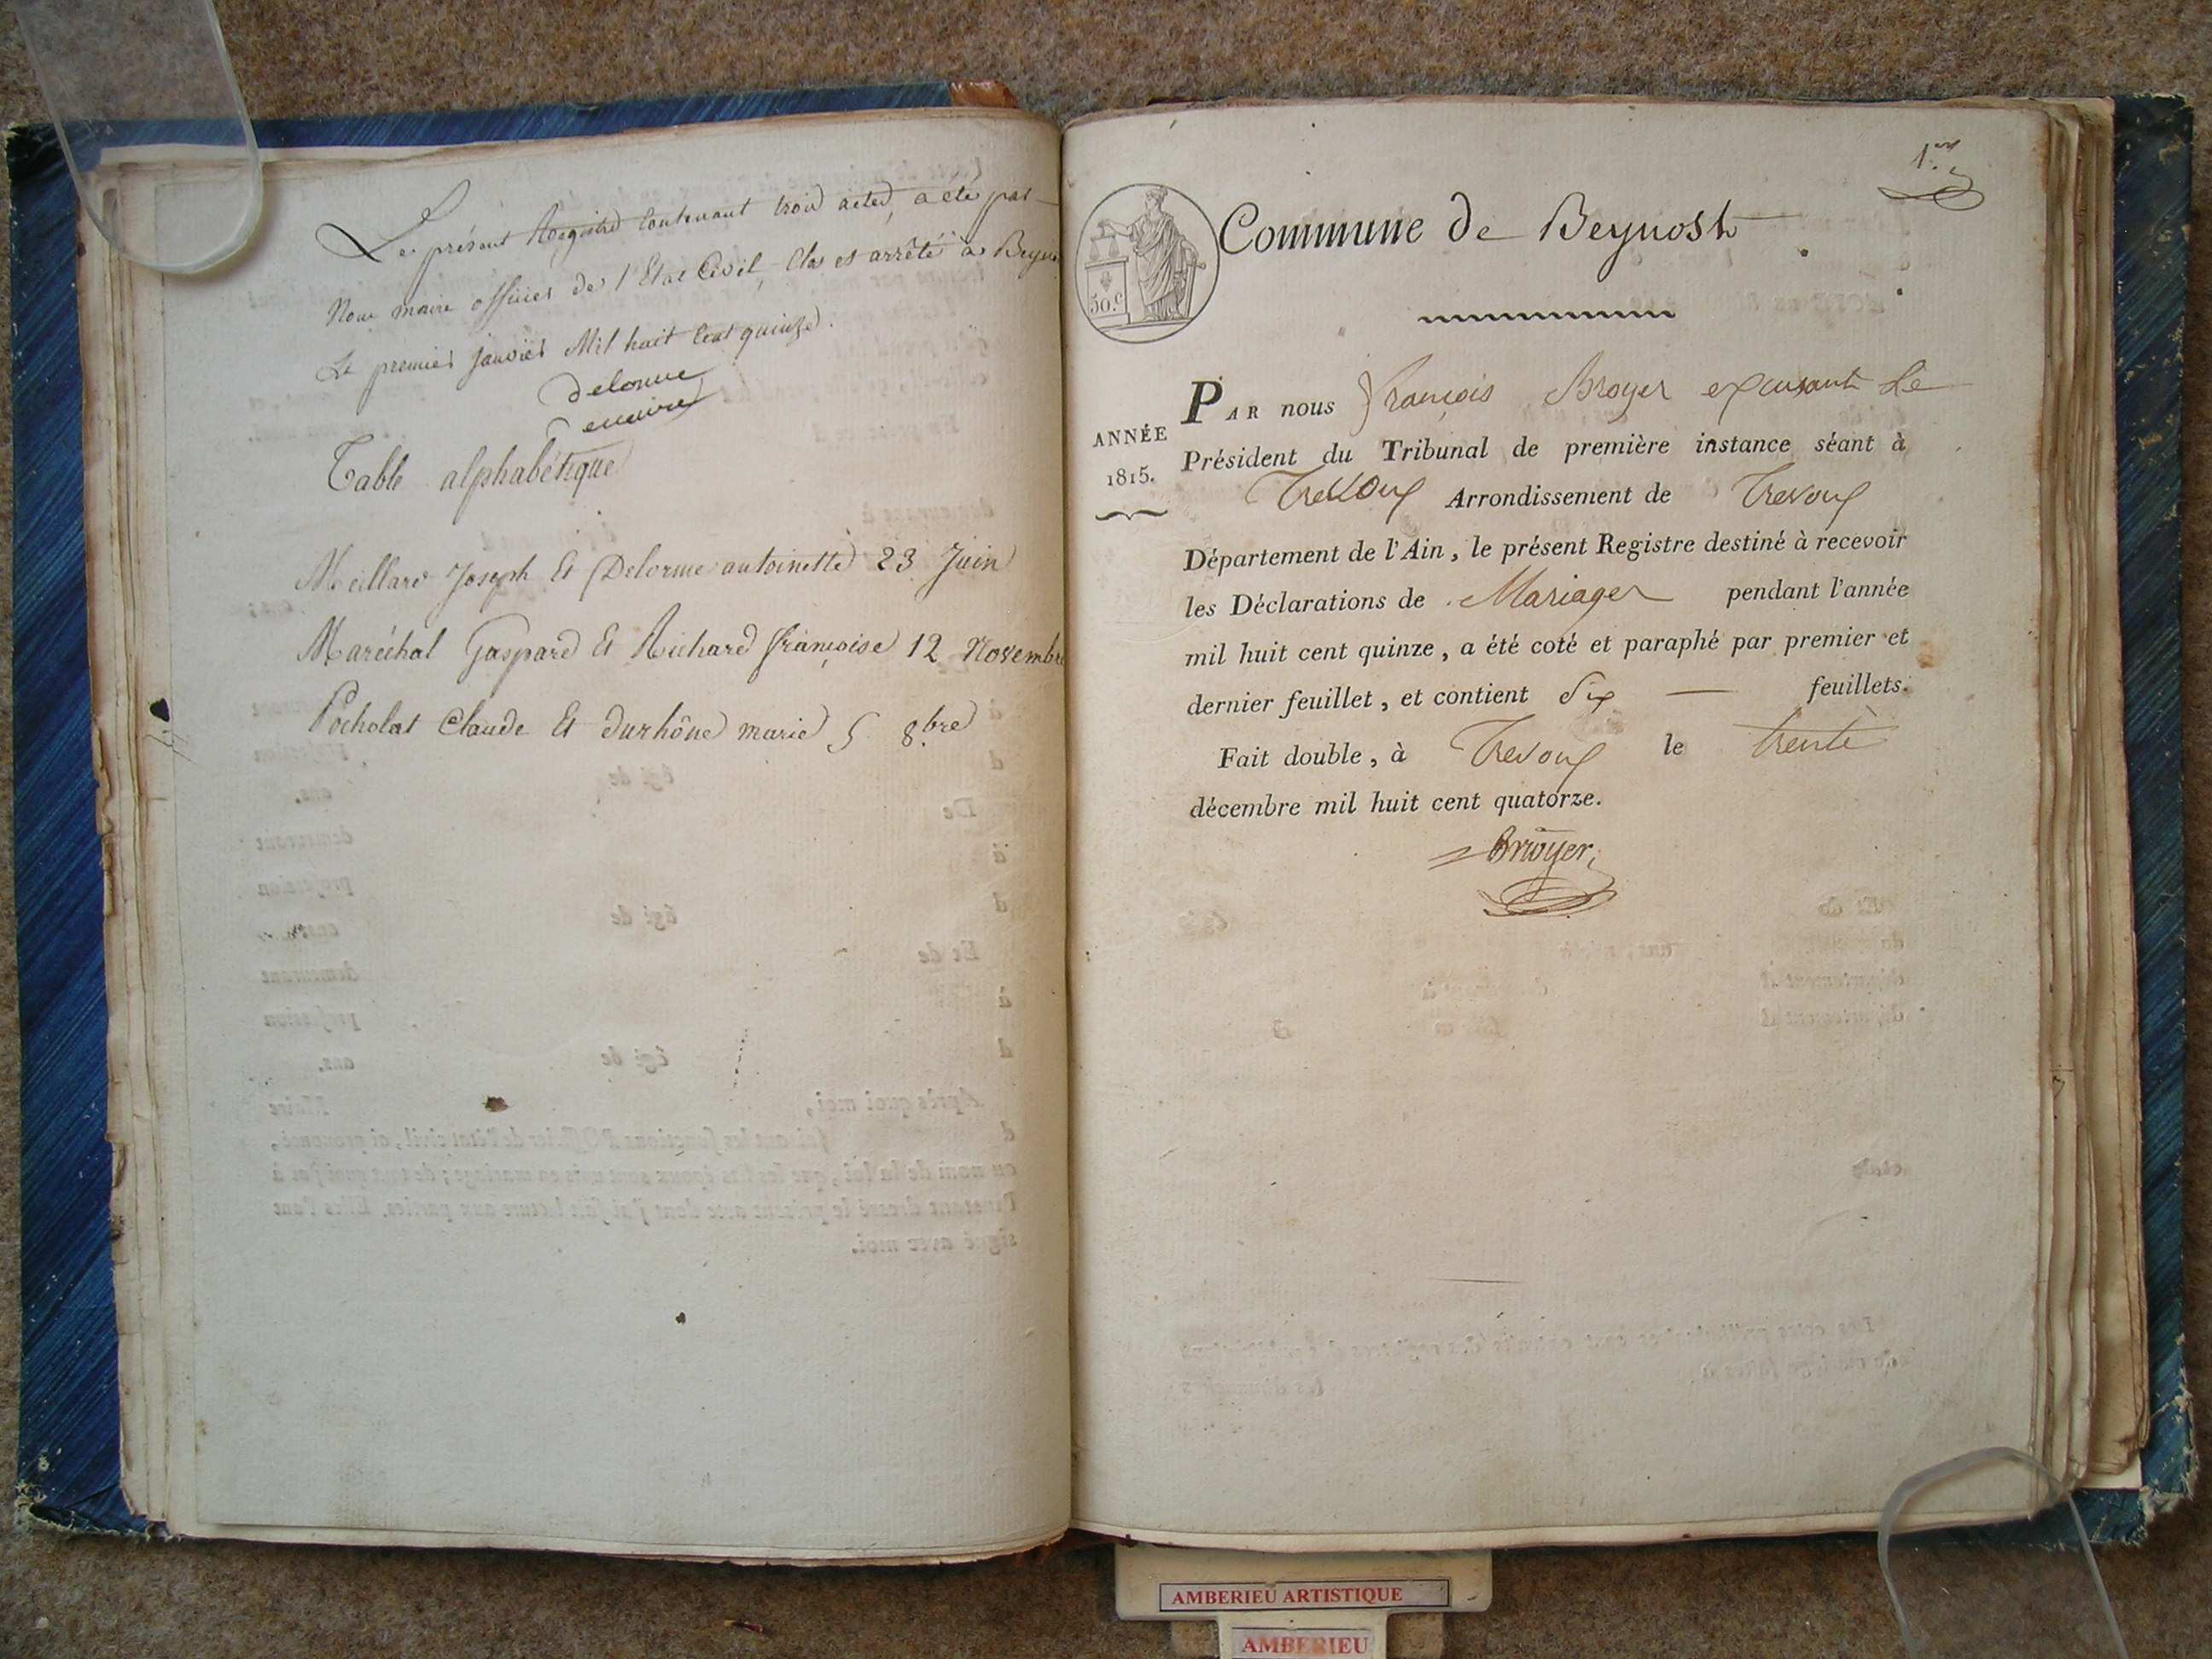 Le présent Registre Contenant trois actes, a été par
Nous maire officier de l'Etat Civil, Clos et arrêté à Beyno
Le premier janvier Mil huit Cent quinze.
Delorme
maire
Table alphabétique
Meillard Joseph Et Delorme antoinette 23 Juin
Maréchal Gaspard Et Richard françoise 12 Novembre
Pocholat Claude Et durhône marie 5 8.bre
1.er
50.c
Commune de Beynost
ANNÉE
1815.
PAR nous françois Broyer Le
Président du Tribunal de première instance séant à
Trevoux Arrondissement de Trevoux
Département de l'Ain, le présent Registre destiné à recevoir
les Déclarations de Mariages pendant l'année
mil huit cent quinze, a été coté et paraphé par premier et
dernier feuillet, et contient Six — feuillets.
Fait double, à Trevoux le trente
décembre mil huit cent quatorze.
Broyer
AMBERIEU ARTISTIQUE
AMBERIEU